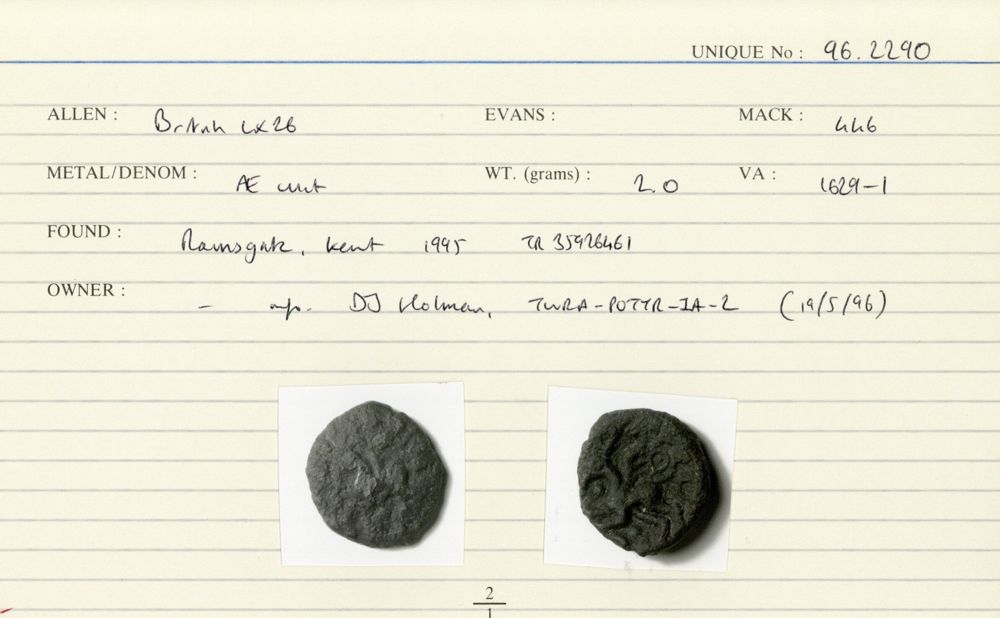 UNIQUE No : 96.2290
ALLEN : British LX26 EVANS : MACK : 446
METAL/DENOM : Æ unit WT. (grams) : 2.0 VA : 1629-1
FOUND : Ramsgate, Kent 1995 TR 35926461
OWNER : - DJ Holman, TWRA-POTTR-IA-2 (19/5/96)
2
1